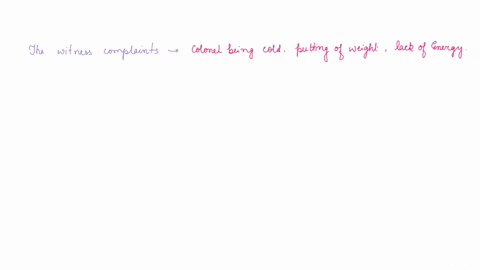 The witness complaints → Colonel being cold. putting of weight, lack of Energy.